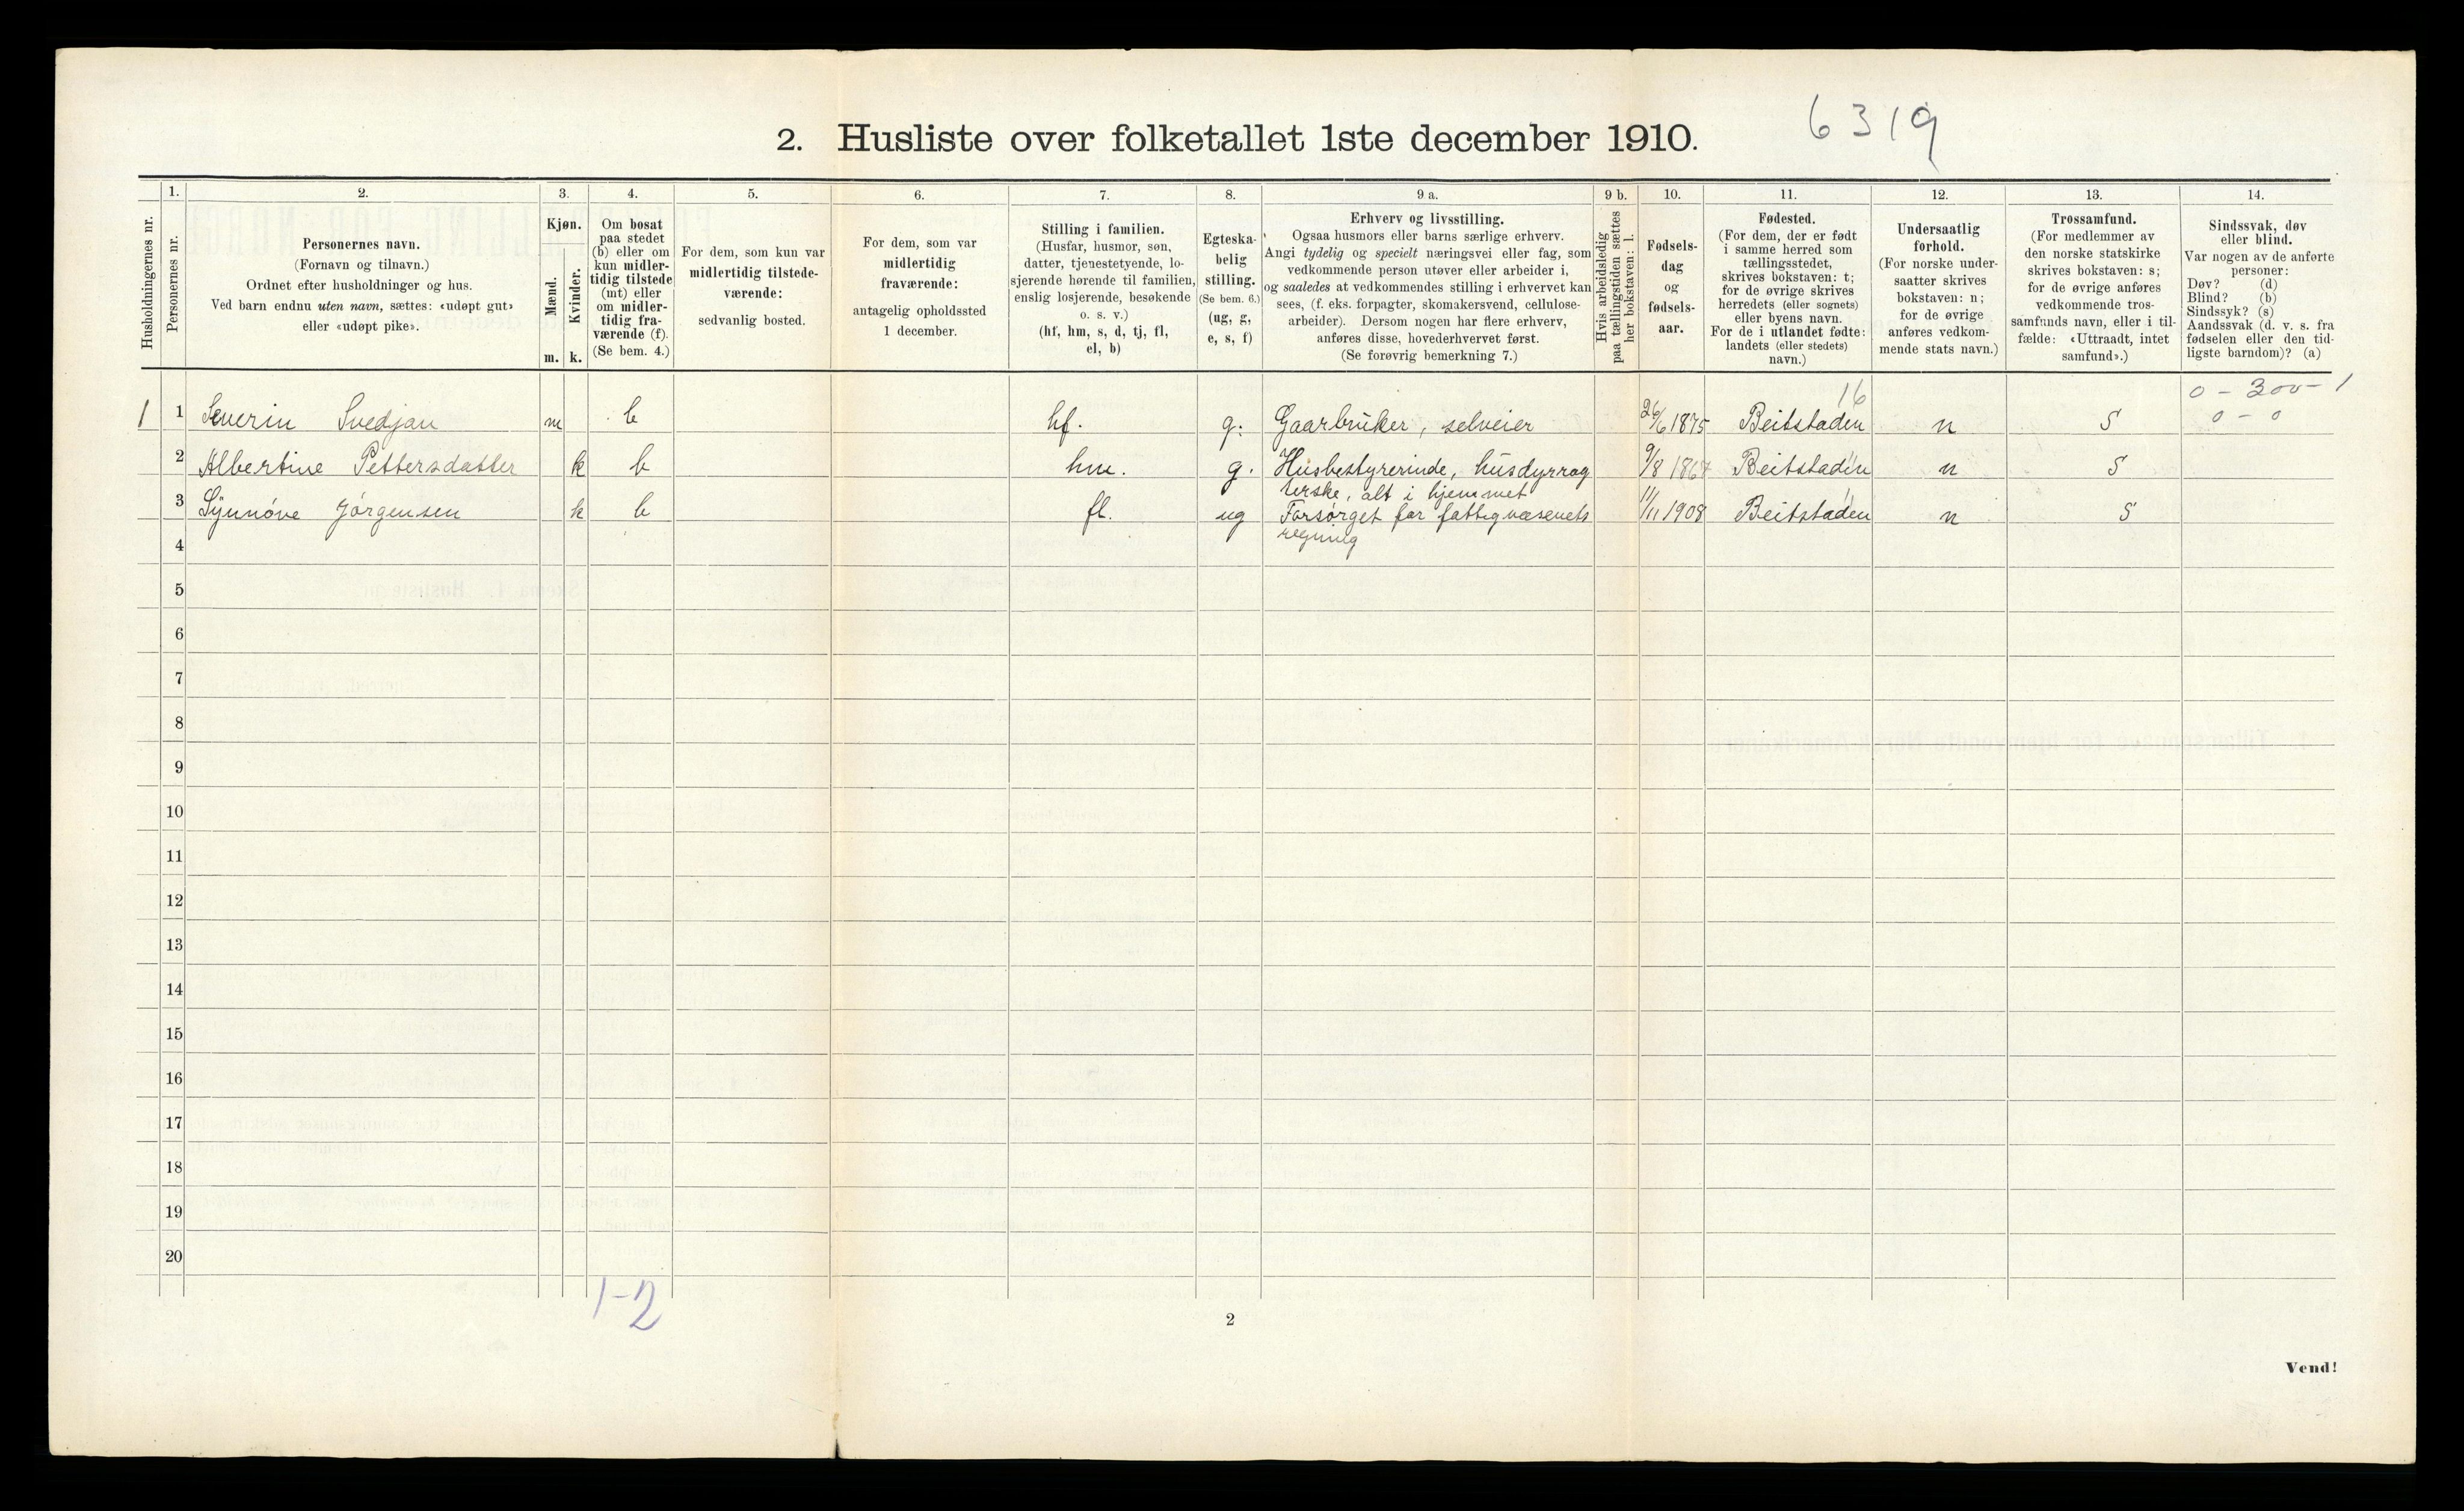 6319
2. Husliste over folketallet 1ste december 1910.
1. 2. 3. 4. 5. 6. 7. 8. 9 a. 9 b. 10. 11. 12. 13. 14.
Husholdningernes nr.
Personernes nr.
Personernes navn.
(Fornavn og tilnavn.)
Ordnet efter husholdninger og hus.
Ved barn endnu uten navn, sættes: «udøpt gut»
eller «udøpt pike».
Kjøn.
Mænd.
Kvinder.
m. k.
Om bosat
paa stedet
(b) eller om
kun midler-
tidig tilstede
(mt) eller
om midler-
tidig fra-
værende (f).
(Se bem. 4.)
For dem, som kun var
midlertidig tilstede-
værende:
sedvanlig bosted.
For dem, som var
midlertidig
fraværende:
antagelig opholdssted
1 december.
Stilling i familien.
(Husfar, husmor, søn,
datter, tjenestetyende, lo-
sjerende hørende til familien,
enslig losjerende, besøkende
o. s. v.)
(hf, hm, s, d, tj, fl,
el, b)
Egteska-
belig
stilling.
(Se bem. 6.)
(ug, g,
e, s, f)
Erhverv og livsstilling.
Ogsaa husmors eller barns særlige erhverv.
Angi tydelig og specielt næringsvei eller fag, som
vedkommende person utøver eller arbeider i,
og saaledes at vedkommendes stilling i erhvervet kan
sees, (f. eks. forpagter, skomakersvend, cellulose-
arbeider). Dersom nogen har flere erhverv,
anføres disse, hovederhvervet først.
(Se forøvrig bemerkning 7.)
Hvis arbeidsledig
paa tællingstiden sættes
her bokstaven: l.
Fødsels-
dag
og
fødsels-
aar.
Fødested.
(For dem, der er født
i samme herred som
tællingsstedet,
skrives bokstaven: t;
for de øvrige skrives
herredets (eller sognets)
eller byens navn.
For de i utlandet fødte:
landets (eller stedets)
navn.)
Undersaatlig
forhold.
(For norske under-
saatter skrives
bokstaven: n;
for de øvrige
anføres vedkom-
mende stats navn.)
Trossamfund.
(For medlemmer av
den norske statskirke
skrives bokstaven: s;
for de øvrige anføres
vedkommende tros-
samfunds navn, eller i til-
fælde: «Uttraadt, intet
samfund».)
Sindssvak, døv
eller blind.
Var nogen av de anførte
personer:
Døv? (d)
Blind? (b)
Sindssyk? (s)
Aandssvak (d. v. s. fra
fødselen eller den tid-
ligste barndom)? (a)
16 0 - 300 - 1
1 1 Severin Svedjan m b hf. g. Gaarbruker, selveier 26/6 1875 Beitstaden n S 0 - 0
2 Albertine Pettersdatter k b hm. g. Husbestyrerinde, husdyrrøg 9/8 1864 Beitstaden n S
terske, alt i hjemmet
3 Synnöve Jörgensen k b fl. ug Forsörget for fattigvæsenets 11/11 1908 Beitstaden n S
regning
4
5
6
7
8
9
10
11
12
13
14
15
16
17
18
19
20
1-2
2
Vend!